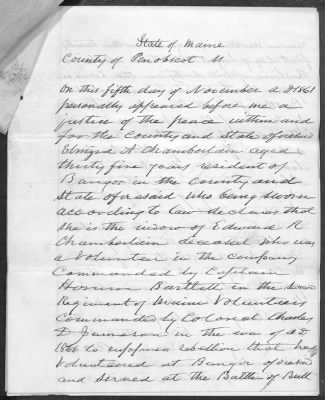 State of Maine
County of Penobscot ss
On this fifth day of November A D 1861
personally appeared before me a
justice of the peace within and
for the County and State aforesaid
A Chamberlain aged
thirty five years resident of
Bangor in the county and
State aforesaid who being sworn
according to law declares that
she is the widow of Edward R
Chamberlain deceased who was
a Volunteer in the company
Commanded by Captain
Bartlett in the
Regiment of Maine Volunteers
Commanded by Colonel Charles
D Jameson in the war of A D
1861 to suppress rebellion that he
Volunteered at Bangor aforesaid
and served at the Battle of Bull